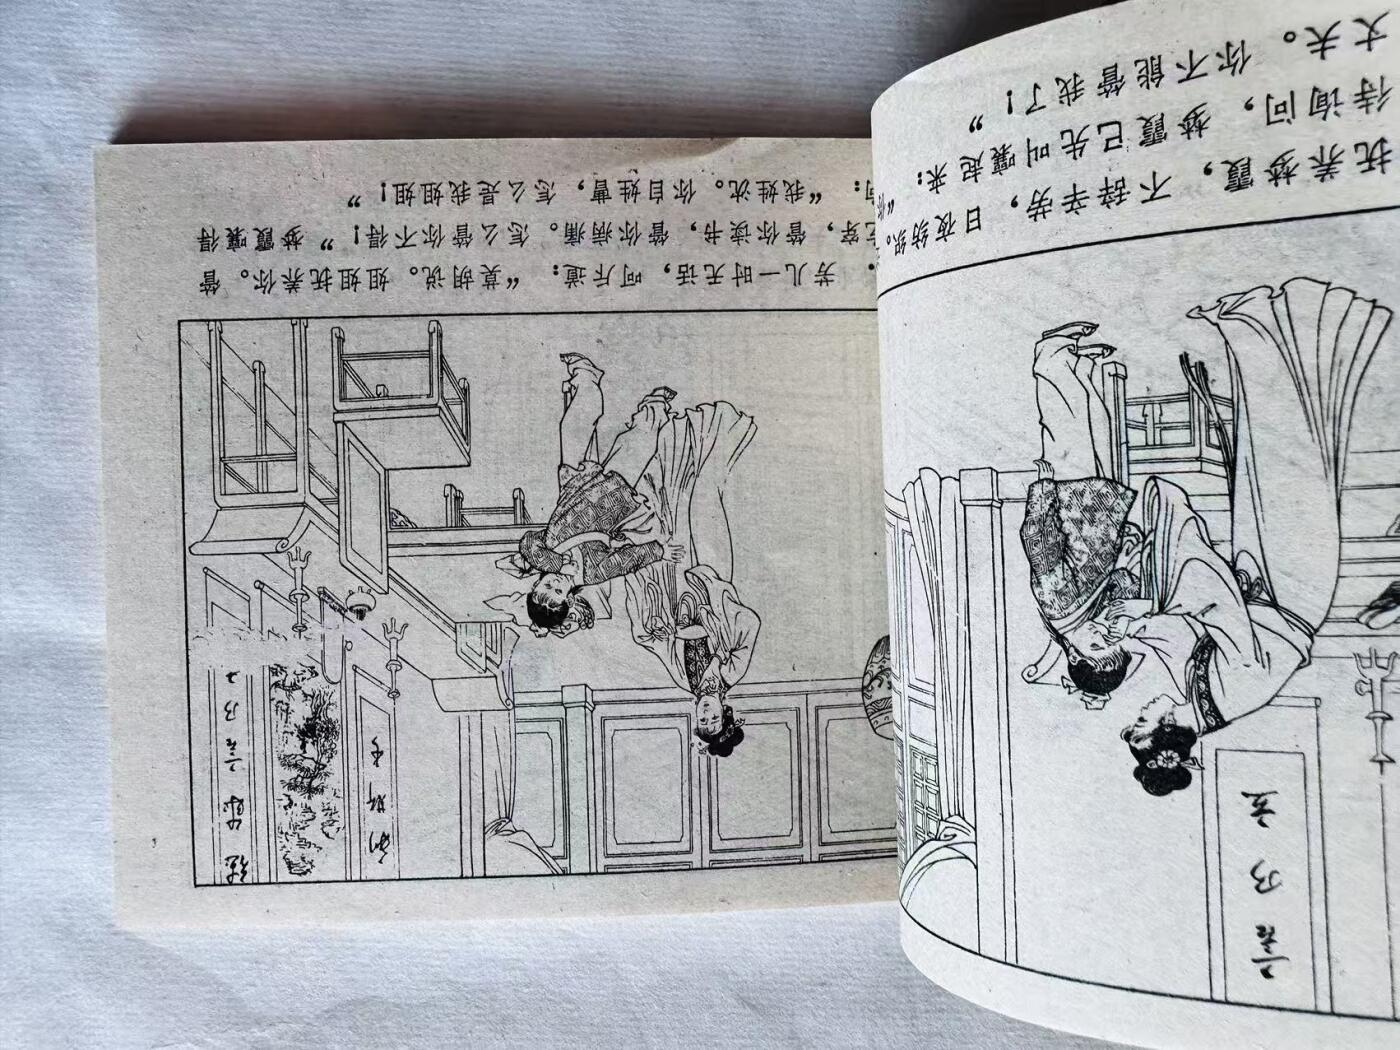 抚养梦霞,不辞辛劳,日夜纺织。
待询问,梦霞已先叫嚷起来:“你
丈夫。你不能管我了!”
芳儿一时无话,呵斥道:“莫胡说。姐姐抚养你。管
穿,管你读书,管你病痛。怎么管你不得!”梦霞嚷得
:“我姓沈。你自姓曹,怎么是我姐姐!”